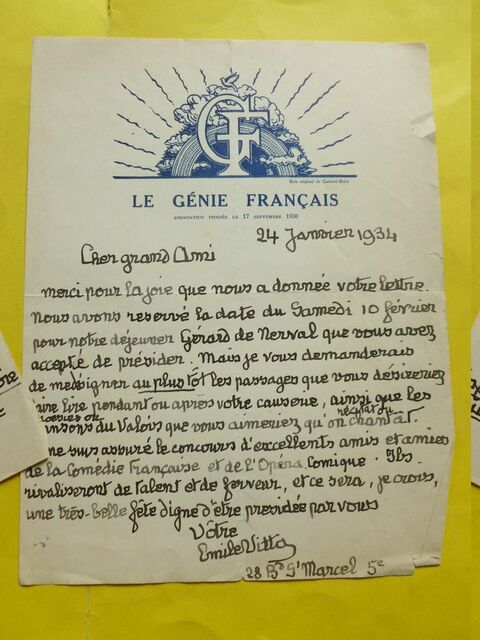 GF
Bois original de Gabriel-Belot
LE GÉNIE FRANÇAIS
ASSOCIATION FONDÉE LE 17 SEPTEMBRE 1930
24 Janvier 1934
Cher grand Ami
merci pour la joie que nous a donnée votre lettre.
Nous avons reservé la date du Samedi 10 février
pour notre déjeuner Gérard de Nerval que vous avez
accepté de présider. Mais je vous demanderais
de me désigner au plus tôt les passages que vous désireriez
faire lire pendant ou après votre causerie, ainsi que les
poésies ou récitat ou
chansons du Valois que vous aimeriez qu'on chantât.
me suis assuré le concours d'excellents amis et amies
de la Comédie Française et de l'Opéra Comique. Ils
rivaliseront de talent et de ferveur, et ce sera, je crois,
une très-belle fête digne d'être présidée par vous
Vôtre
Emile Vitta
28 Bd St Marcel 5e